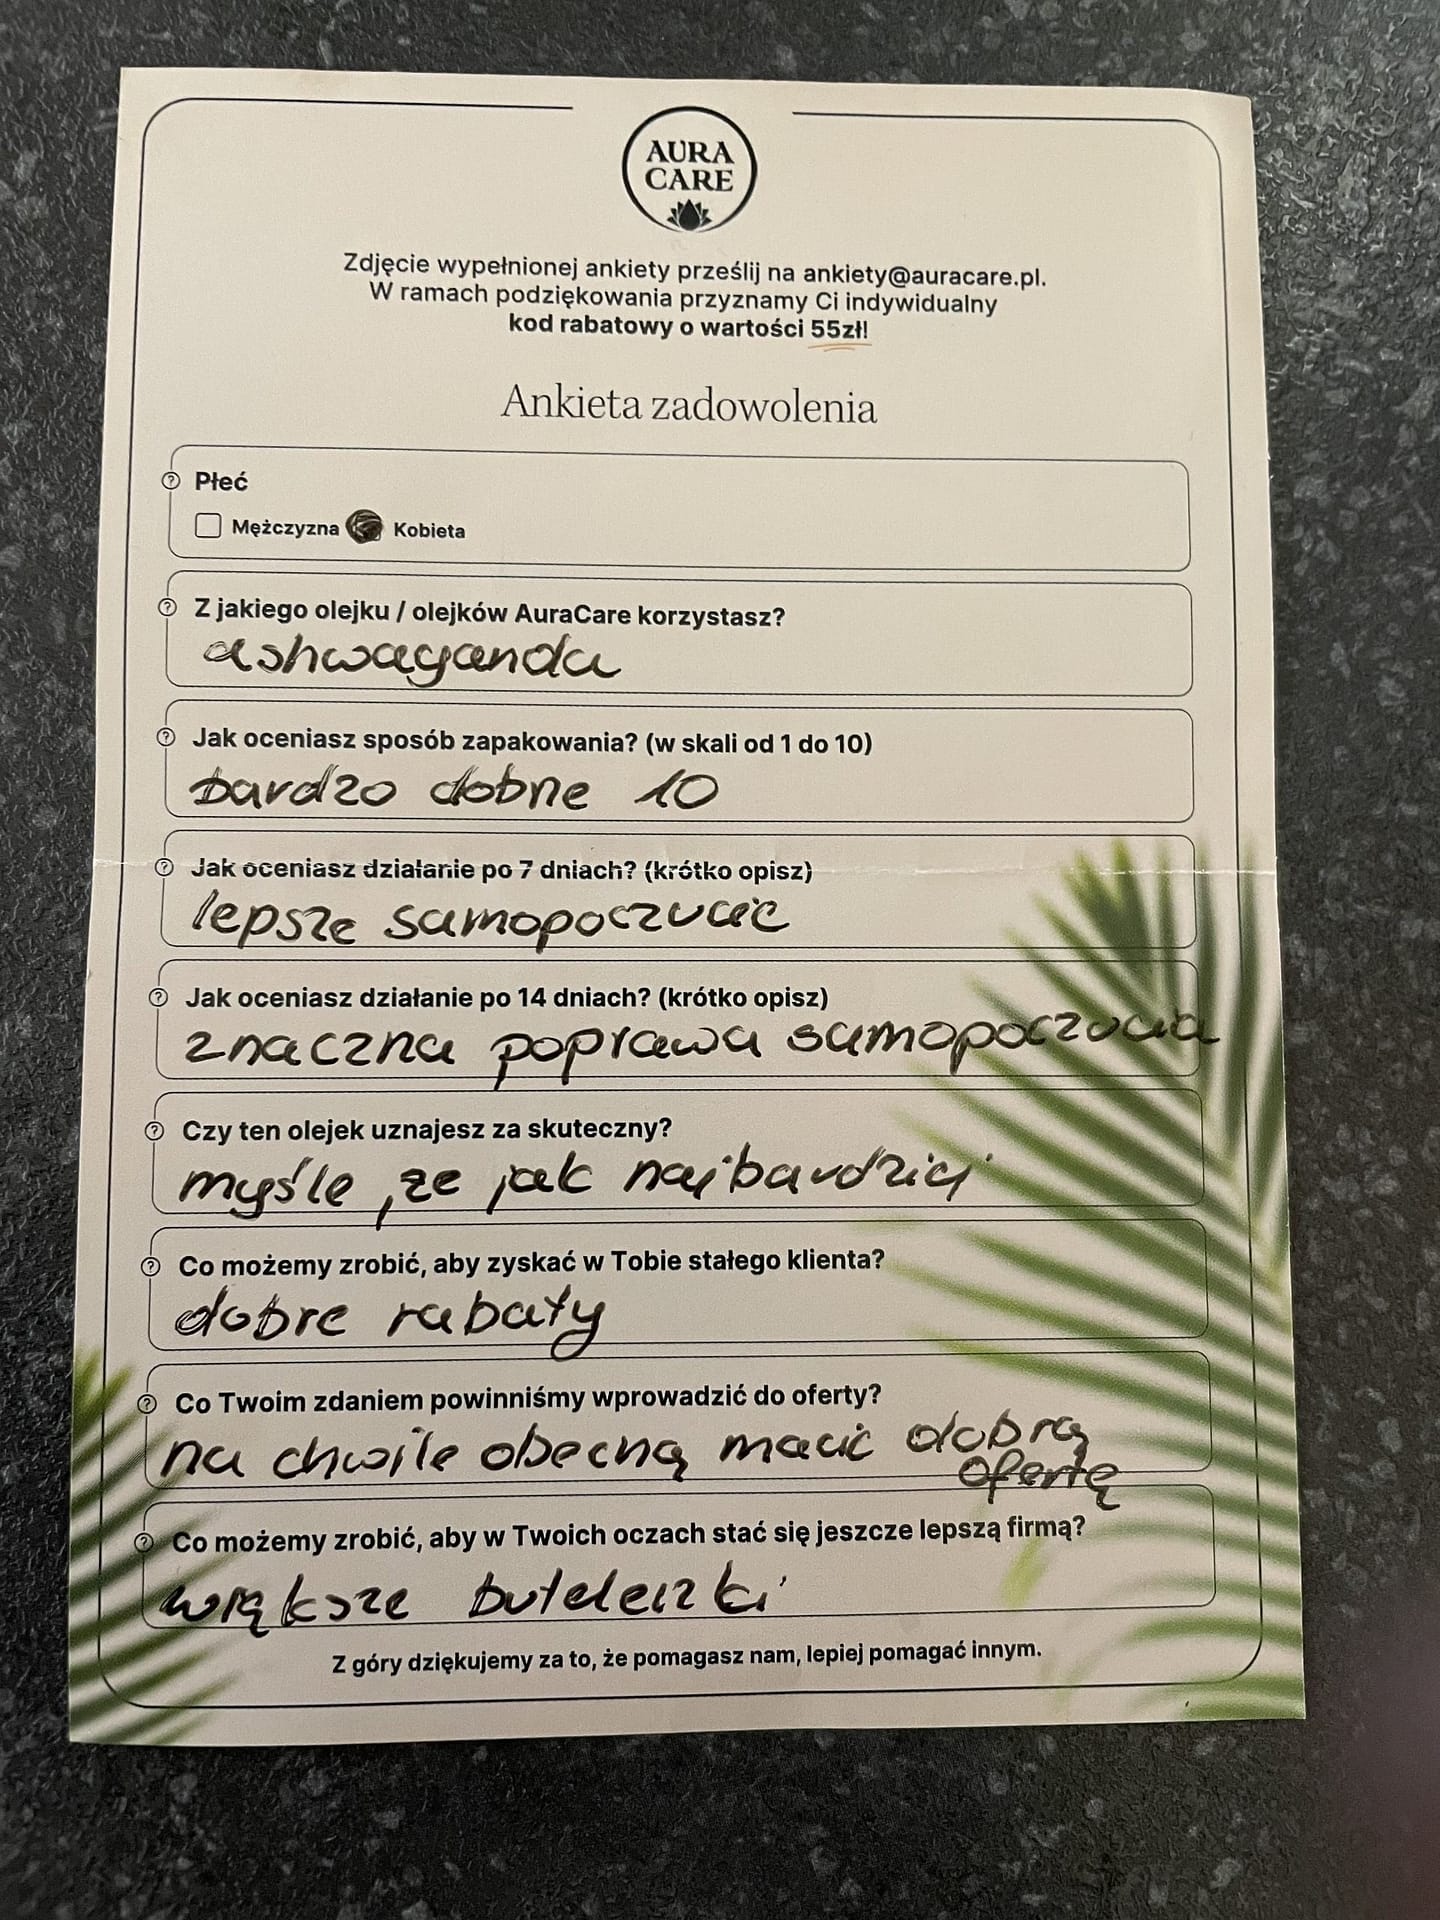 AURA
CARE
Zdjęcie wypełnionej ankiety prześlij na ankiety@auracare.pl.
W ramach podziękowania przyznamy Ci indywidualny
kod rabatowy o wartości 55zł!
Ankieta zadowolenia
Płeć
Mężczyzna Kobieta
Z jakiego olejku / olejków AuraCare korzystasz?
ashwaganda
Jak oceniasz sposób zapakowania? (w skali od 1 do 10)
bardzo dobne 10
Jak oceniasz działanie po 7 dniach? (krótko opisz)
lepsze samopoczucie
Jak oceniasz działanie po 14 dniach? (krótko opisz)
znaczna poprawa samopoczucia
Czy ten olejek uznajesz za skuteczny?
myśle, ze jak najbardziej
Co możemy zrobić, aby zyskać w Tobie stałego klienta?
dobre rabaty
Co Twoim zdaniem powinniśmy wprowadzić do oferty?
na chwile obecną macie dobrą
ofertę
Co możemy zrobić, aby w Twoich oczach stać się jeszcze lepszą firmą?
większe buteleczki
Z góry dziękujemy za to, że pomagasz nam, lepiej pomagać innym.